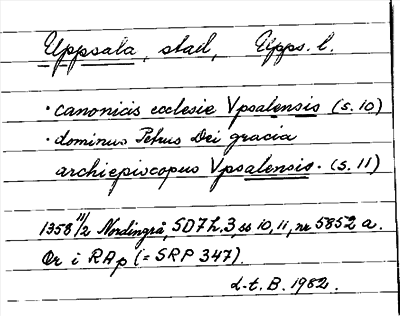 Uppsala, stad, Upps. l.
· canonicis ecclesie Vpsalensis (s. 10)
· dominus Petrus Dei gracia
archiepiscopus Vpsalensis. (s. 11)
1358 11/2 Nordingrå, SD 7 h. 3, ss 10, 11, nr 5852 a.
Or i RAp (= SRP 347).
L-t. B. 1982.